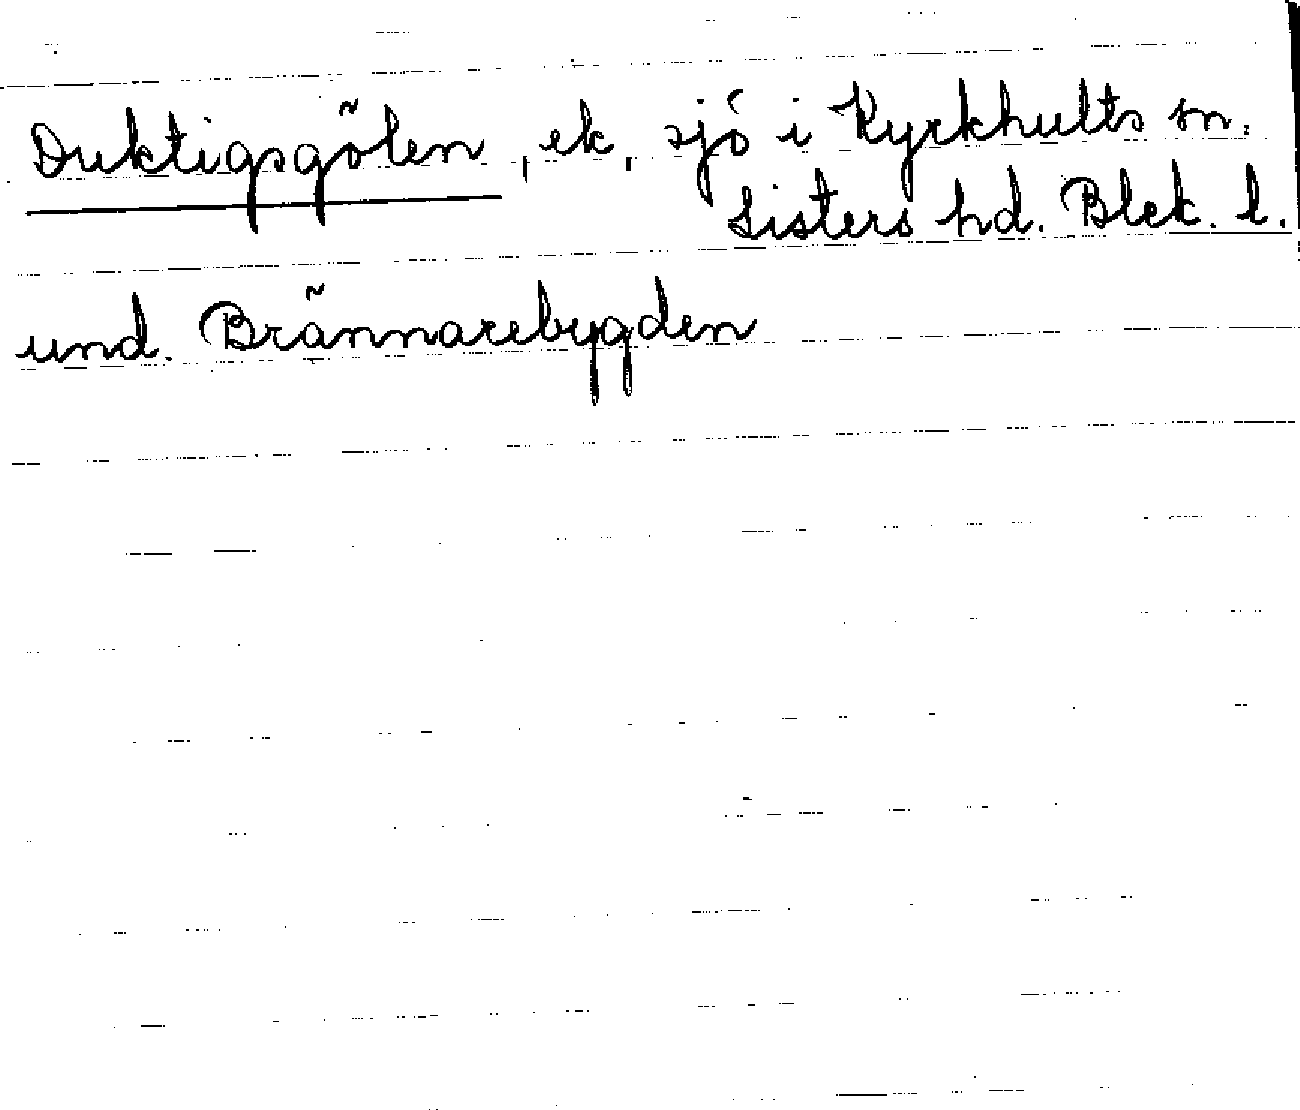 Duktigsgölen, ek, sjö i Kyrkhults sn.
Listers hd. Blek. l.
und. Brännarebygden